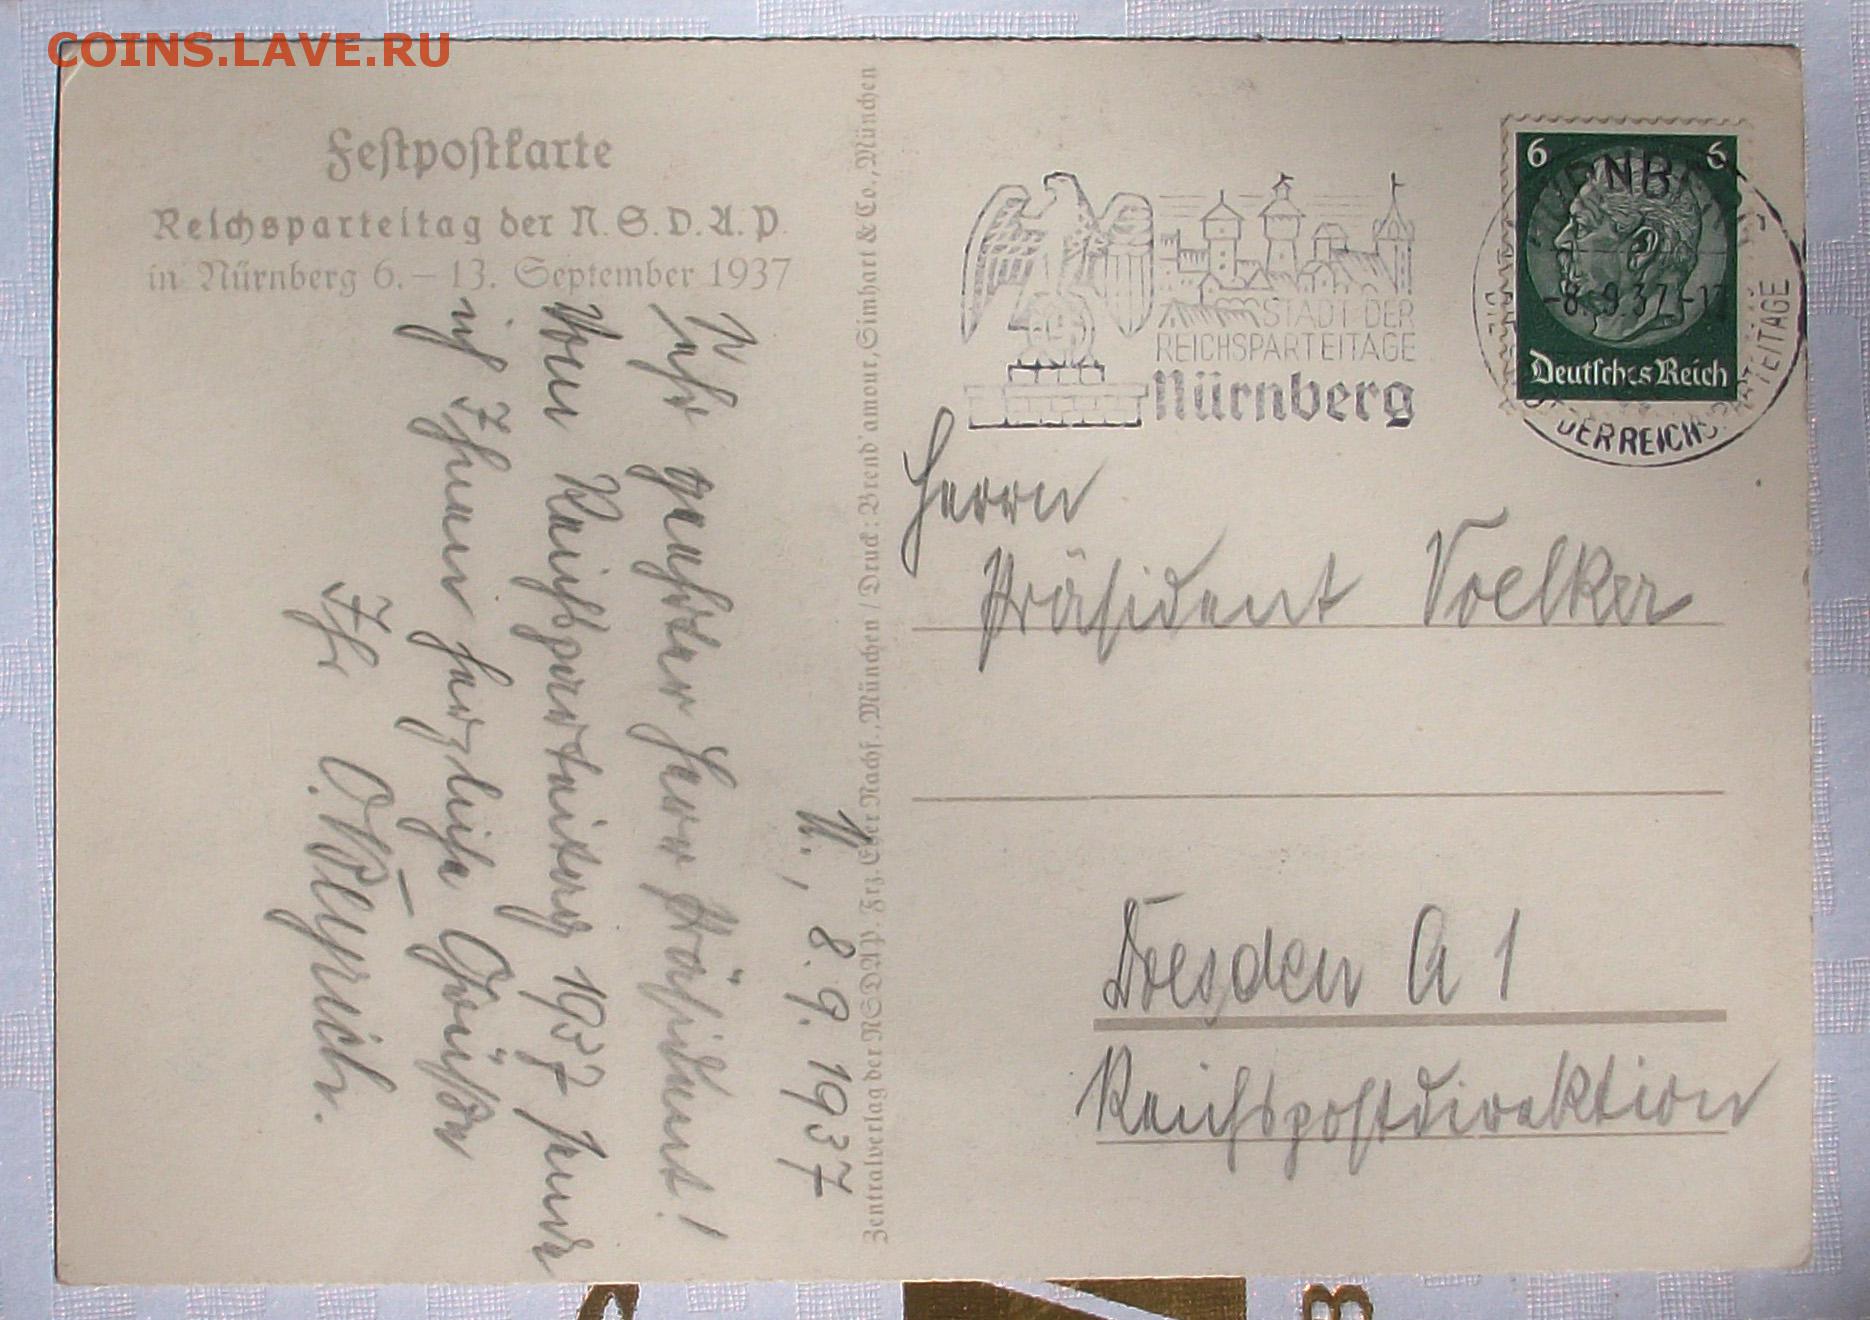 COINS.LAVE.RU
Festpostkarte
Reichsparteitag der N.S.D.A.P.
in Nürnberg 6.–13. September 1937
N., 8.9.1937
Sehr geehrter Herr Präsident!
Vom Reichsparteitag 1937 sende
ich Ihnen herzliche Grüße
Ihr
Zentralverlag der NSDAP. Frz. Eher Nachf., München / Druck: Brend'amour, Simhart & Co., München
STADT DER
REICHSPARTEITAGE
Nürnberg
6 6
Deutsches Reich
-8.9.37
DER REICHSPARTEITAGE
Herrn
Präsident Voelker
Dresden A 1
Reichspostdirektion